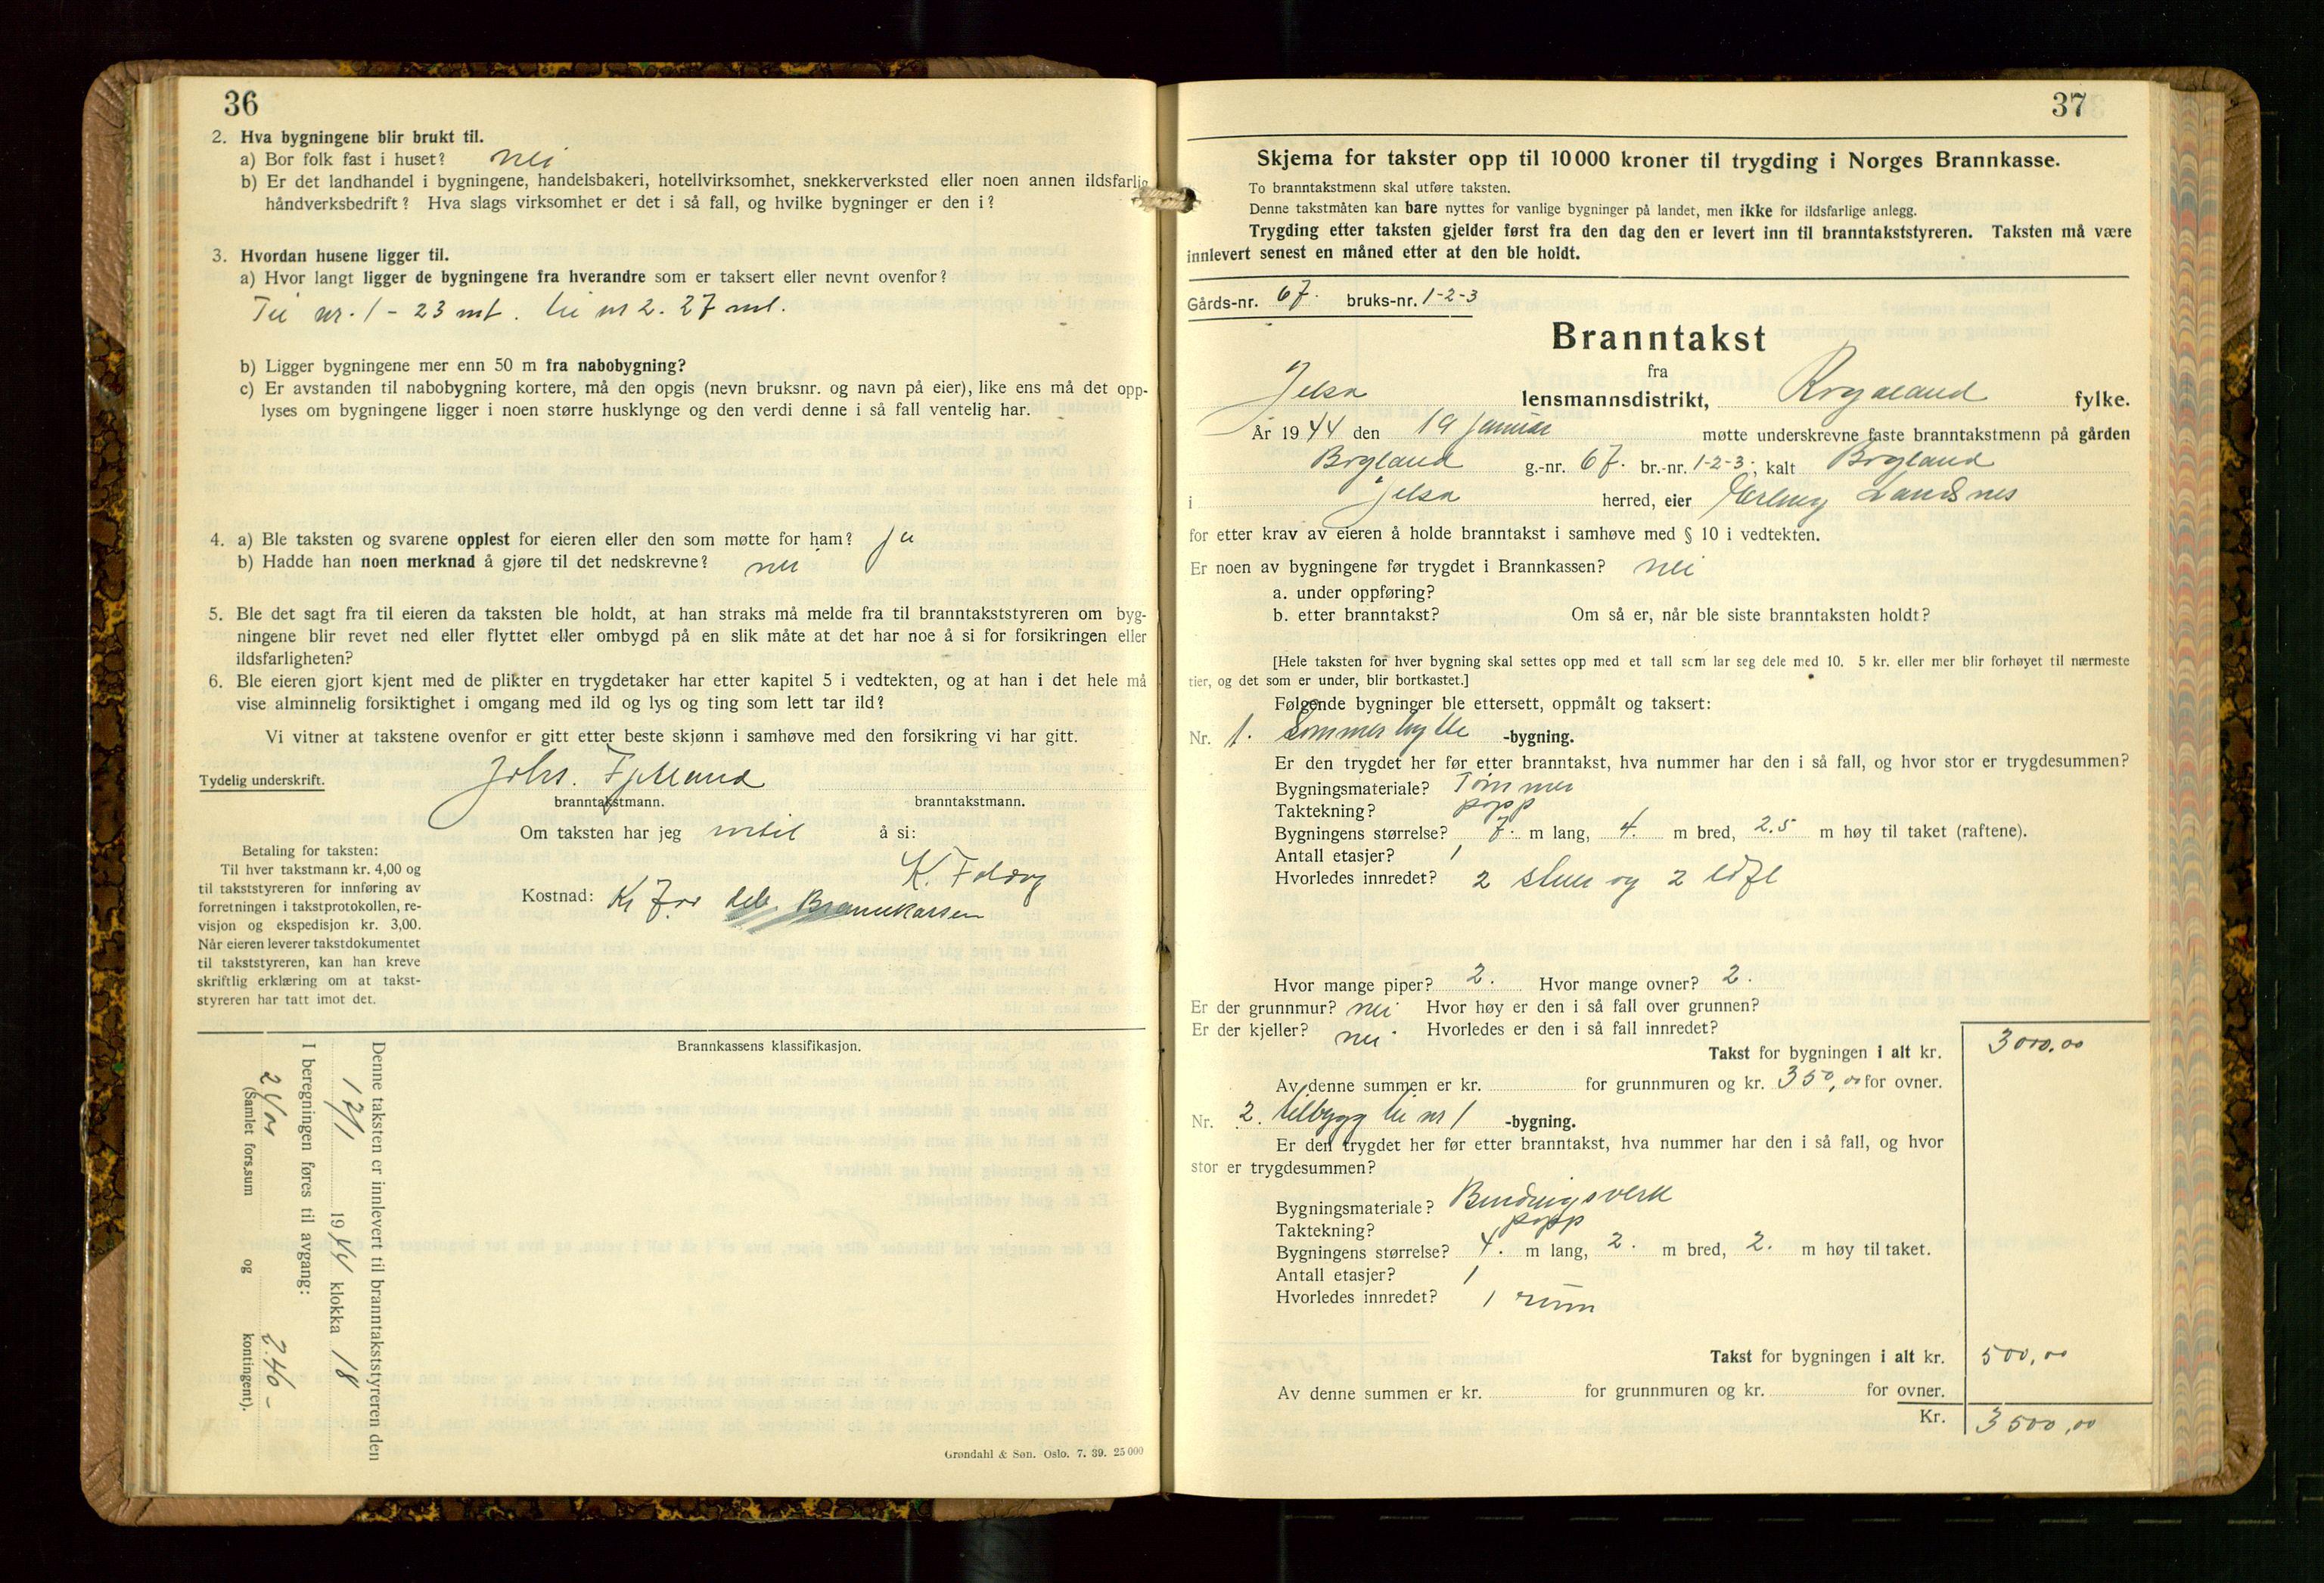 36
2. Hva bygningene blir brukt til.
a) Bor folk fast i huset? nei
b) Er det landhandel i bygningene, handelsbakeri, hotellvirksomhet, snekkerverksted eller noen annen ildsfarlig
håndverksbedrift? Hva slags virksomhet er det i så fall, og hvilke bygninger er den i?
3. Hvordan husene ligger til.
a) Hvor langt ligger de bygningene fra hverandre som er taksert eller nevnt ovenfor?
Til nr. 1 - 23 mt. til nr 2. 27 mt.
b) Ligger bygningene mer enn 50 m fra nabobygning?
c) Er avstanden til nabobygning kortere, må den opgis (nevn bruksnr. og navn på eier), like ens må det opp-
lyses om bygningene ligger i noen større husklynge og den verdi denne i så fall ventelig har.
4. a) Ble taksten og svarene opplest for eieren eller den som møtte for ham? ja
b) Hadde han noen merknad å gjøre til det nedskrevne? nei
5. Ble det sagt fra til eieren da taksten ble holdt, at han straks må melde fra til branntakststyreren om byg-
ningene blir revet ned eller flyttet eller ombygd på en slik måte at det har noe å si for forsikringen eller
ildsfarligheten?
6. Ble eieren gjort kjent med de plikter en trygdetaker har etter kapitel 5 i vedtekten, og at han i det hele må
vise alminnelig forsiktighet i omgang med ild og lys og ting som lett tar ild?
Vi vitner at takstene ovenfor er gitt etter beste skjønn i samhøve med den forsikring vi har gitt.
Tydelig underskrift.
Johs. Fjelland
branntakstmann. branntakstmann.
Om taksten har jeg intit å si:
K. Foldøy
Kostnad: Kr 7,00 deb. Brannkassen
Betaling for taksten:
Til hver takstmann kr. 4,00 og
til takststyreren for innføring av
forretningen i takstprotokollen, re-
visjon og ekspedisjon kr. 3,00.
Når eieren leverer takstdokumentet
til takststyreren, kan han kreve
skriftlig erklæring om at takst-
styreren har tatt imot det.
Brannkassens klassifikasjon.
Denne taksten er innlevert til branntakststyreren den
17/1 1944 klokka 18
I beregningen føres til avgang:
2.40 -
(Samlet fors.sum og kontingent).
Grøndahl & Søn. Oslo. 7. 39. 25 000
37
Skjema for takster opp til 10 000 kroner til trygding i Norges Brannkasse.
To branntakstmenn skal utføre taksten.
Denne takstmåten kan bare nyttes for vanlige bygninger på landet, men ikke for ildsfarlige anlegg.
Trygding etter taksten gjelder først fra den dag den er levert inn til branntakststyreren. Taksten må være
innlevert senest en måned etter at den ble holdt.
Gårds-nr. 67. bruks-nr. 1-2-3
Branntakst
fra
Jelsa lensmannsdistrikt, Rogaland fylke.
År 1944 den 19 januar møtte underskrevne faste branntakstmenn på gården
Bogland g.-nr. 67. br.-nr. 1-2-3, kalt Bogland
i Jelsa herred, eier Erling Landsnes
for etter krav av eieren å holde branntakst i samhøve med § 10 i vedtekten.
Er noen av bygningene før trygdet i Brannkassen? nei
a. under oppføring?
b. etter branntakst? Om så er, når ble siste branntaksten holdt?
[Hele taksten for hver bygning skal settes opp med et tall som lar seg dele med 10. 5 kr. eller mer blir forhøyet til nærmeste
tier, og det som er under, blir bortkastet.]
Følgende bygninger ble ettersett, oppmålt og taksert:
Nr. 1. Sommerhytte -bygning.
Er den trygdet her før etter branntakst, hva nummer har den i så fall, og hvor stor er trygdesummen?
Bygningsmateriale? Tømmer
Taktekning? papp
Bygningens størrelse? 7. m lang, 4. m bred, 2.5 m høy til taket (raftene).
Antall etasjer? 1
Hvorledes innredet? 2 stuer og 2 loft
Hvor mange piper? 2. Hvor mange ovner? 2.
Er der grunnmur? nei Hvor høy er den i så fall over grunnen?
Er der kjeller? nei Hvorledes er den i så fall innredet?
Takst for bygningen i alt kr. 3000,00
Av denne summen er kr. for grunnmuren og kr. 350,00 for ovner.
Nr. 2. tilbygg til nr 1 -bygning.
Er den trygdet her før etter branntakst, hva nummer har den i så fall, og hvor
stor er trygdesummen?
Bygningsmateriale? Bindingsverk
Taktekning? papp
Bygningens størrelse? 4. m lang, 2. m bred, 2. m høy til taket.
Antall etasjer? 1
Hvorledes innredet? 1 rum
Takst for bygningen i alt kr. 500,00
Av denne summen er kr. for grunnmuren og kr. for ovner.
Kr. 3500,00